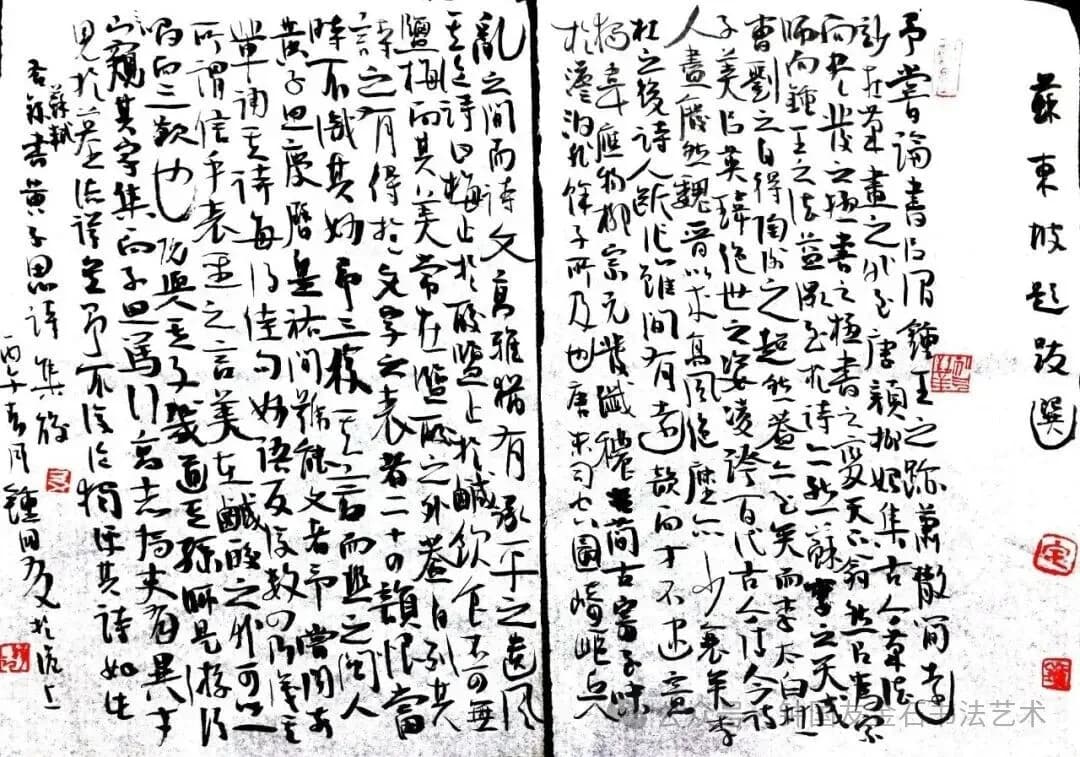 蘇東坡題跋選
予嘗論書以謂鍾王之跡蕭散簡遠
妙在筆畫之外至唐顏柳始集古今筆法
而盡發之極書之極書之變天下翕然以為宗
師而鍾王之法益微至於詩亦然蘇李之天成
曹劉之自得陶謝之超然蓋亦至矣而李太白杜
子美以英瑋絕世之姿凌跨百代古今詩
人盡廢然魏晉以來高風絕塵亦少衰矣李
杜之後詩人繼作雖間有遠韻而才不逮意
獨韋應物柳宗元發纖穠簡古寄至味
於澹泊非餘子所及也唐末司空圖崎嶇兵
亂之間而詩文高雅猶有承平之遺風
其論詩曰梅止於酸鹽止於鹹飲食不可無
鹽梅而其美常在鹹酸之外蓋自列其
詩之有得於文字之表者二十四韻恨當
時不識其妙予三復其言而悲之閩人
黃子思慶曆皇祐間號能文者予嘗聞前
輩誦其詩每得佳句妙語反復數四乃識其
所謂信乎表聖之言美在鹹酸之外可以一
唱而三歎也既與其子幾道其孫師是游得
窺其家集而子思篤行高志為吏有異才
見於墓誌詳矣予不復論獨評其詩如此
右錄蘇軾書黃子思詩集後
丙午春月鍾國友於滬上